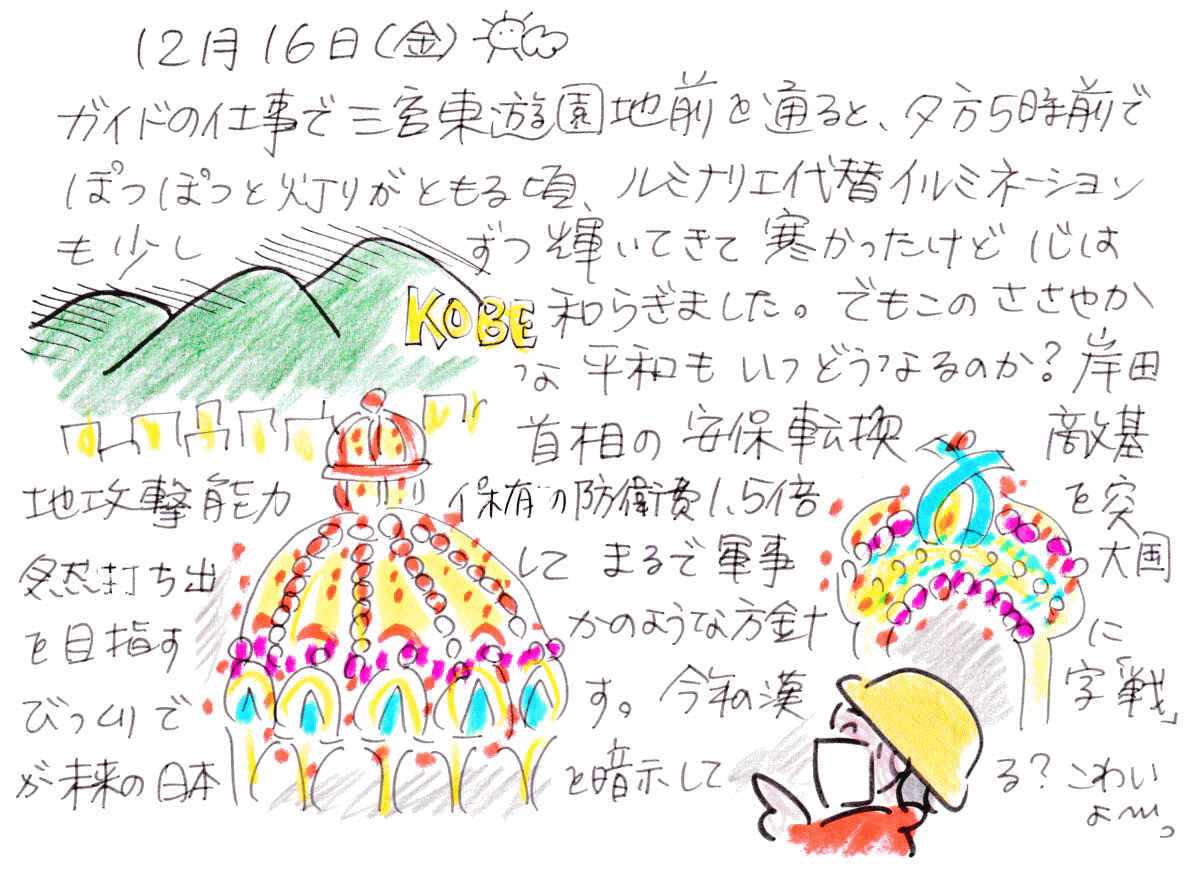 12月16日(金)
ガイドの仕事で三宮東遊園地前を通ると、夕方5時前で
ぽつぽつと灯りがともる頃、ルミナリエ代替イルミネーション
も少しずつ輝いてきて寒かったけど心は
KOBE
和らぎました。でもこのささやか
な平和もいつどうなるのか?岸田
首相の安保転換 敵基
地攻撃能力保有の防衛費1.5倍を突
然打ち出して まるで軍事大国
を目指すかのような方針に
びっくりです。今年の漢字「戦」
が未来の日本を暗示してる?こわい
よ〜。